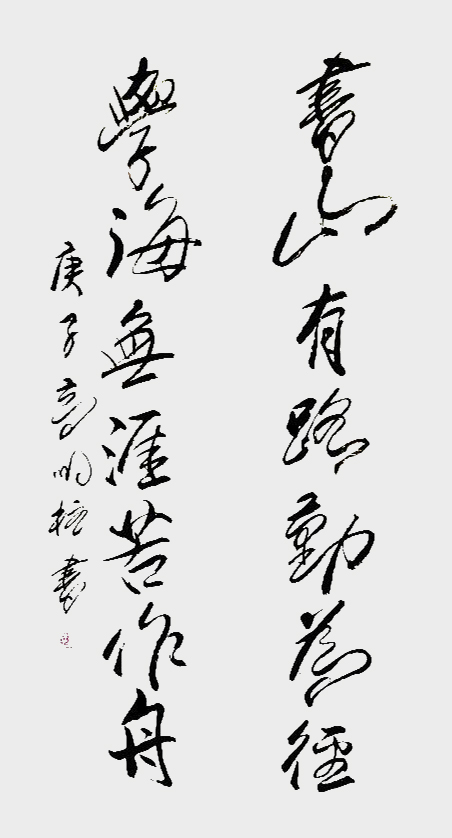 書山有路勤為徑
學海無涯苦作舟
庚子 明 書